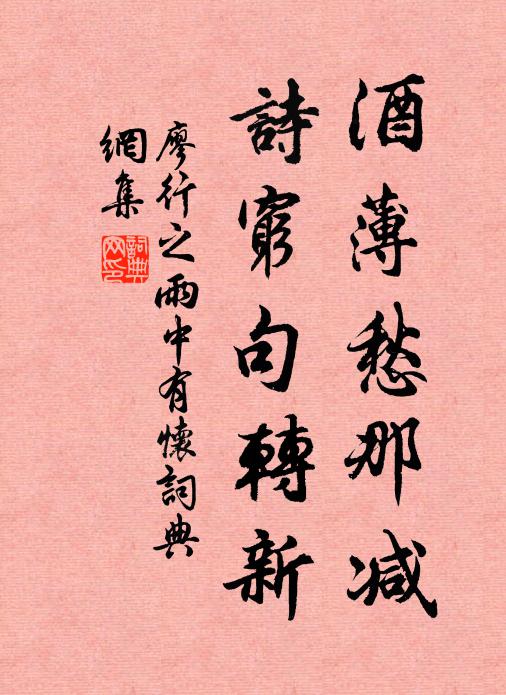 酒薄愁那减
詩窮句轉新
廖行之雨中有懷詞典
網集
詞典網印